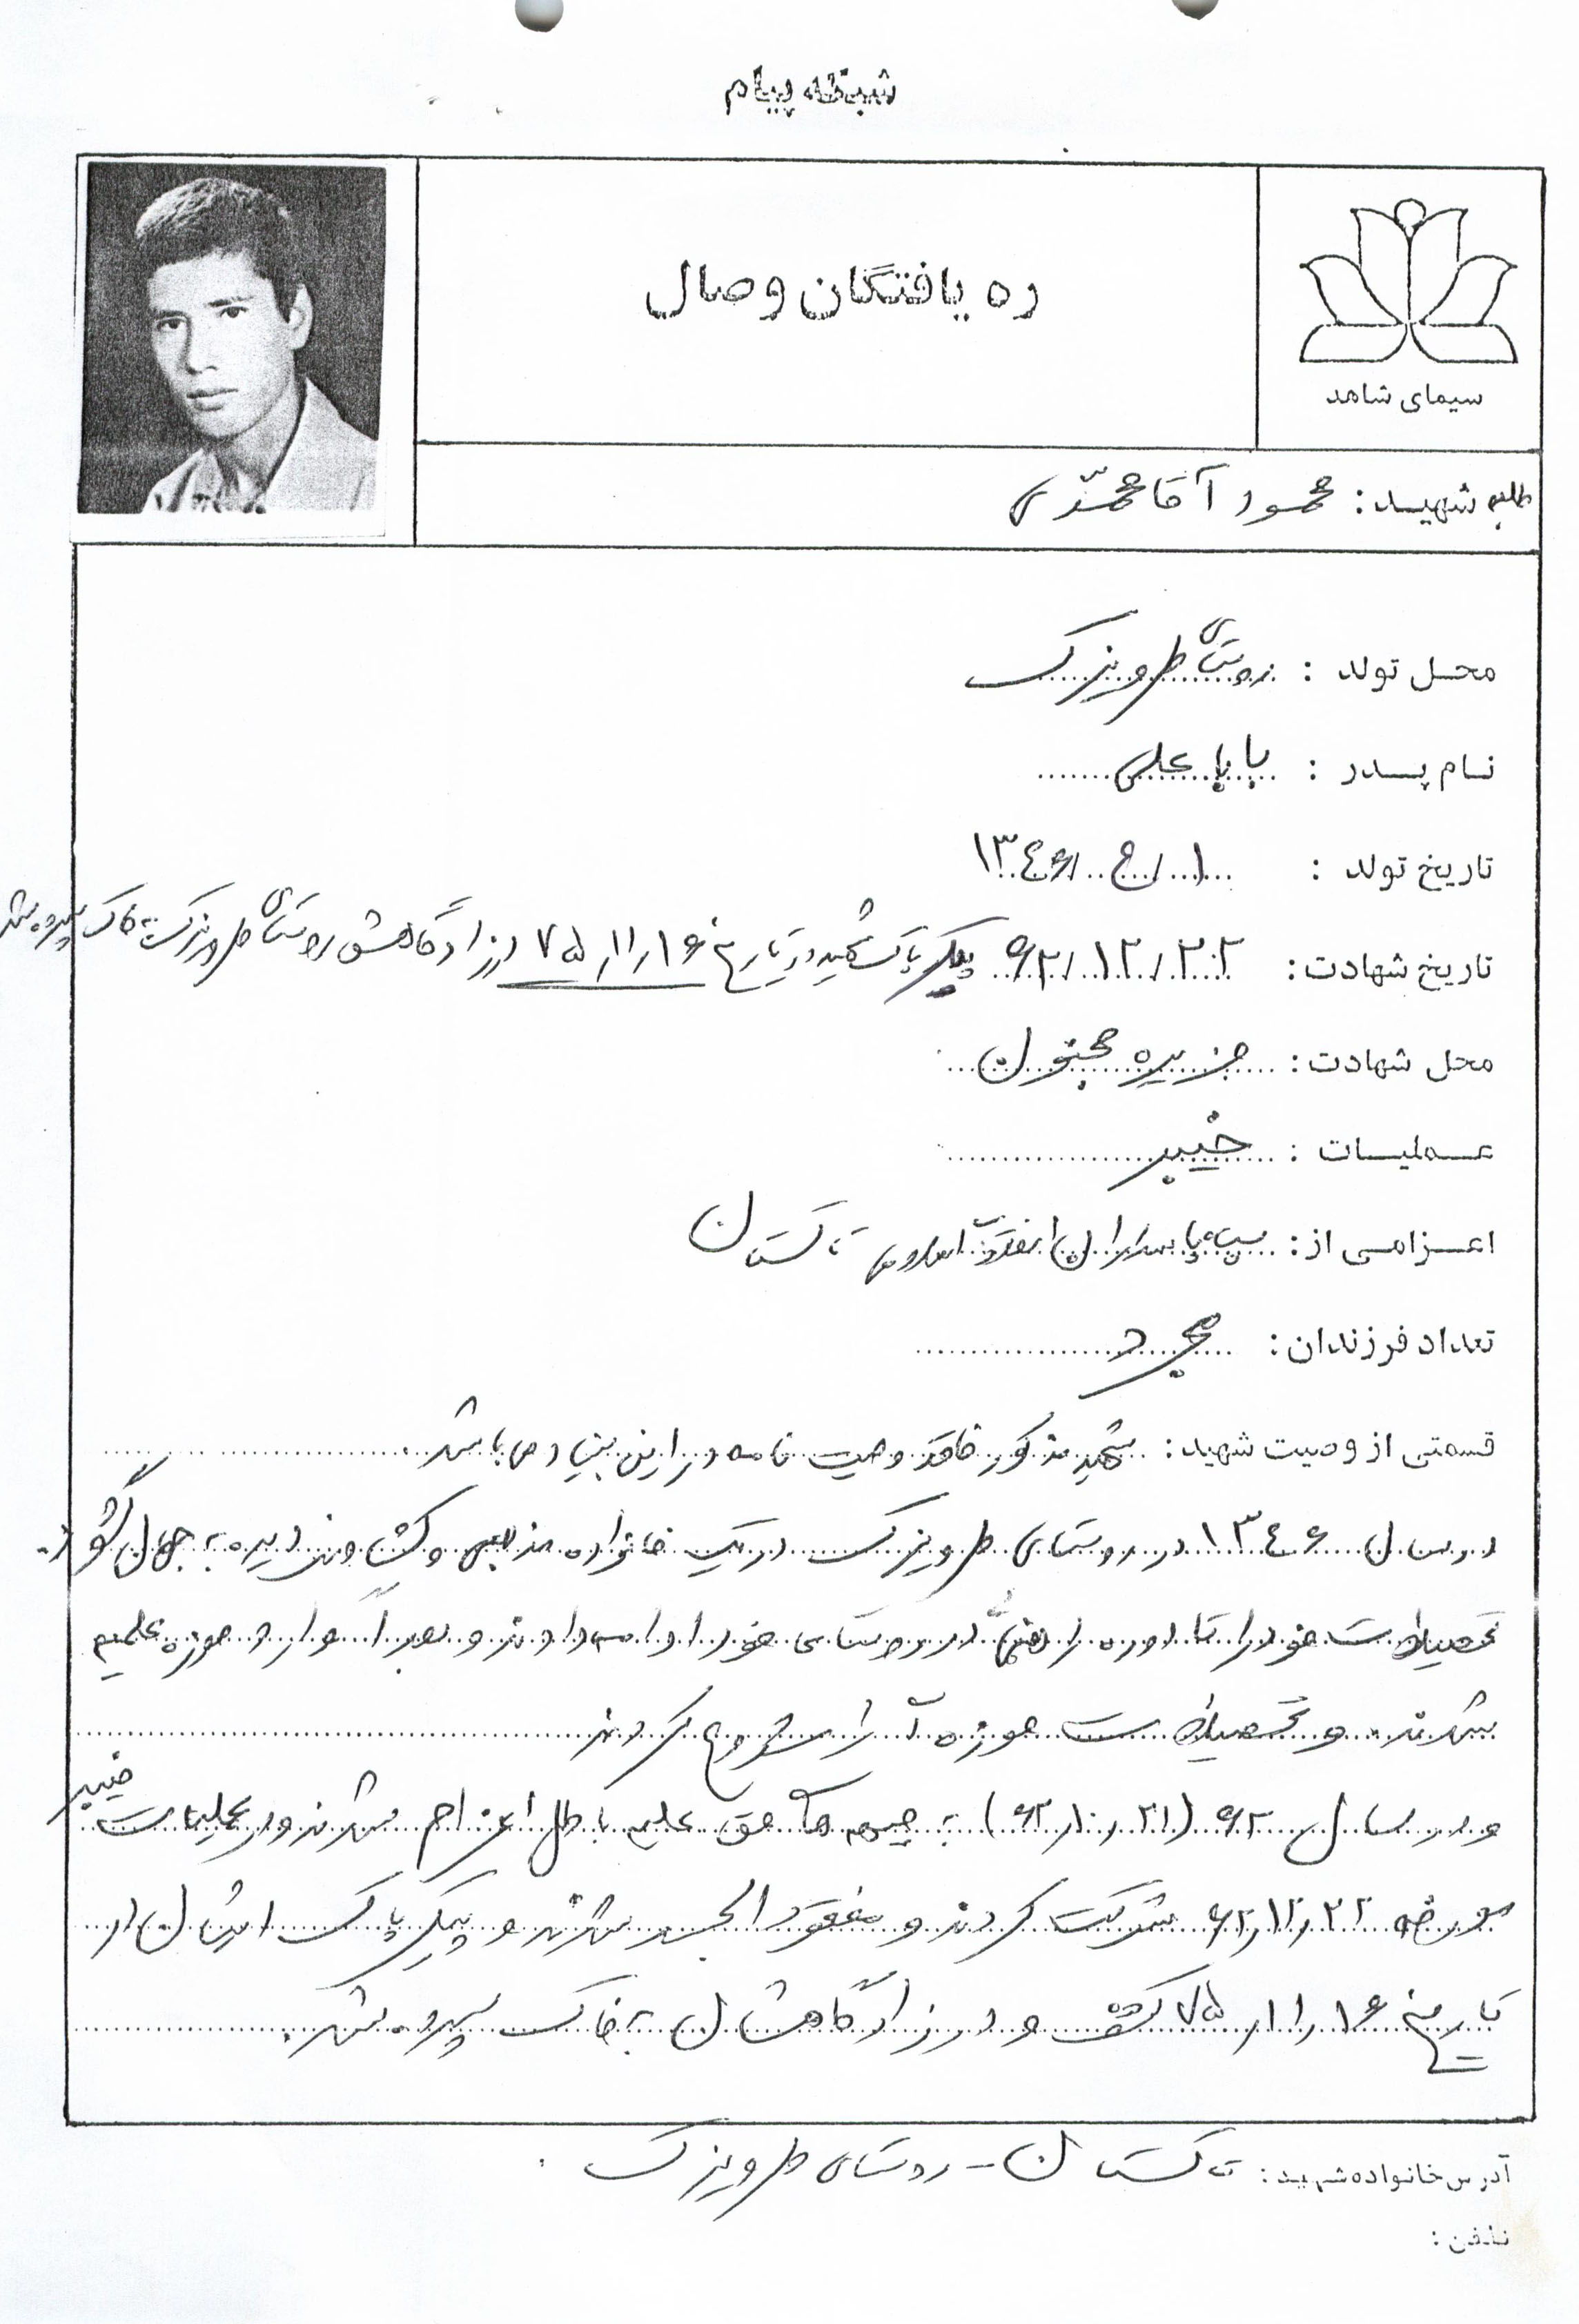 شبکه پیام
ره یافتگان وصال
سیمای شاهد
طلبه شهید: محمود آقا محمّدی
محل تولد : روستای طرویزک
نام پدر : بابا علی
تاریخ تولد : ۱/ ۴/ ۱۳۴۶
تاریخ شهادت: ۲۲/ ۱۲/ ۶۲ پیکر پاک شهید در تاریخ ۷۵/۱۱/۱۶ در زادگاهش روستای طرویزک به خاک سپرده شد
محل شهادت: جزیره مجنون
عملیات : خیبر
اعزامی از: سپاه پاسداران انقلاب اسلامی تاکستان
تعداد فرزندان: مجرد
قسمتی از وصیت شهید: شهید مذکور فاقد وصیت نامه در این بنیاد می باشد.
در سال ۱۳۴۶ در روستای طرویزک در یک خانواده مذهبی و کشاورز دیده به جهان گشود.
تحصیلات خود را تا دوره راهنمائی در روستای خود ادامه دادند و بعد از آن وارد حوزه علمیه
شدند و تحصیلات حوزه ای را شروع کردند
و در سال ۶۲ (۶۲/۱۰/۲۱) به جبهه های حق علیه باطل اعزام شدند و در عملیات خیبر
مورخه ۶۲/۱۲/۲۲ شرکت کردند و مفقود الجسد شدند و پیکر پاک ایشان در
تاریخ ۷۵/۱۱/۱۶ کشف و در زادگاهشان به خاک سپرده شد.
آدرس خانواده شهید: تاکستان - روستای طرویزک
تلفن :